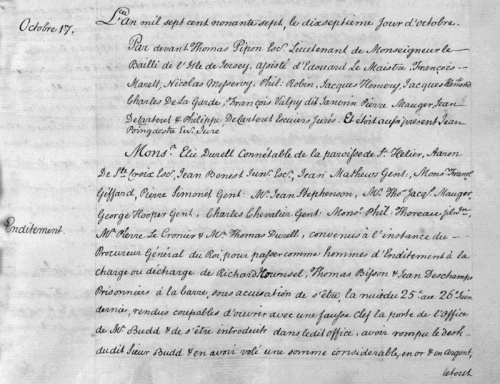 Octobre 17.
L'an mil sept cent nonante sept, le dixseptieme Jour d'octobre.
Par devant Thomas Pipon Esc. Lieutenant de Monseigneur le
Bailli de l'Isle de Jersey, assisté d'Edouard Le Maistre François
Marett, Nicolas Messervy, Phil: Robin, Jacques Hemery, Jacques
Charles De La Garde, François Valpy dit Janvrin Pierre Mauger Jean
De Carteret & Philippe De Carteret Escuiers Jurés. Et étoit aussi présent Jean
Poingdestre Esc. Juré
Mons.r Elie Durell Connétable de la paroisse de St. Helier, Aaron
De Ste. Croix Esc. Jean Benest Junr. Esc. Jean Mathews Gent. Mons.r Franç.
Giffard, Pierre Simonet Gent: Mr. Jean Stephenson, Mr. Tho. Jacq. Mauger,
George Hooper Gent, Charles Chevalier Gent: Mons.r Phil: Thoreau, fil: Je.
Enditement.
Mr. Pierre Le Cronier & Mr. Thomas Durell, convenus à l'instance du
Procureur Général du Roi, pour passer comme hommes d'Enditement à la
charge ou décharge de Richard Hounsel, Thomas Bisson & Jean Deschamps
Prisonniers à la barre, sous accusation de s'être, la nuit du 25e. au 26e. Juin
dernier, rendus coupables d'ouvrir avec une fausse clef la porte de l'office
de Mr. Budd & de s'être introduits dans ledit office, avoir rompu le desk
du dit Sieur Budd & en avoir volé une somme considerable, en or & en argent,
le tout